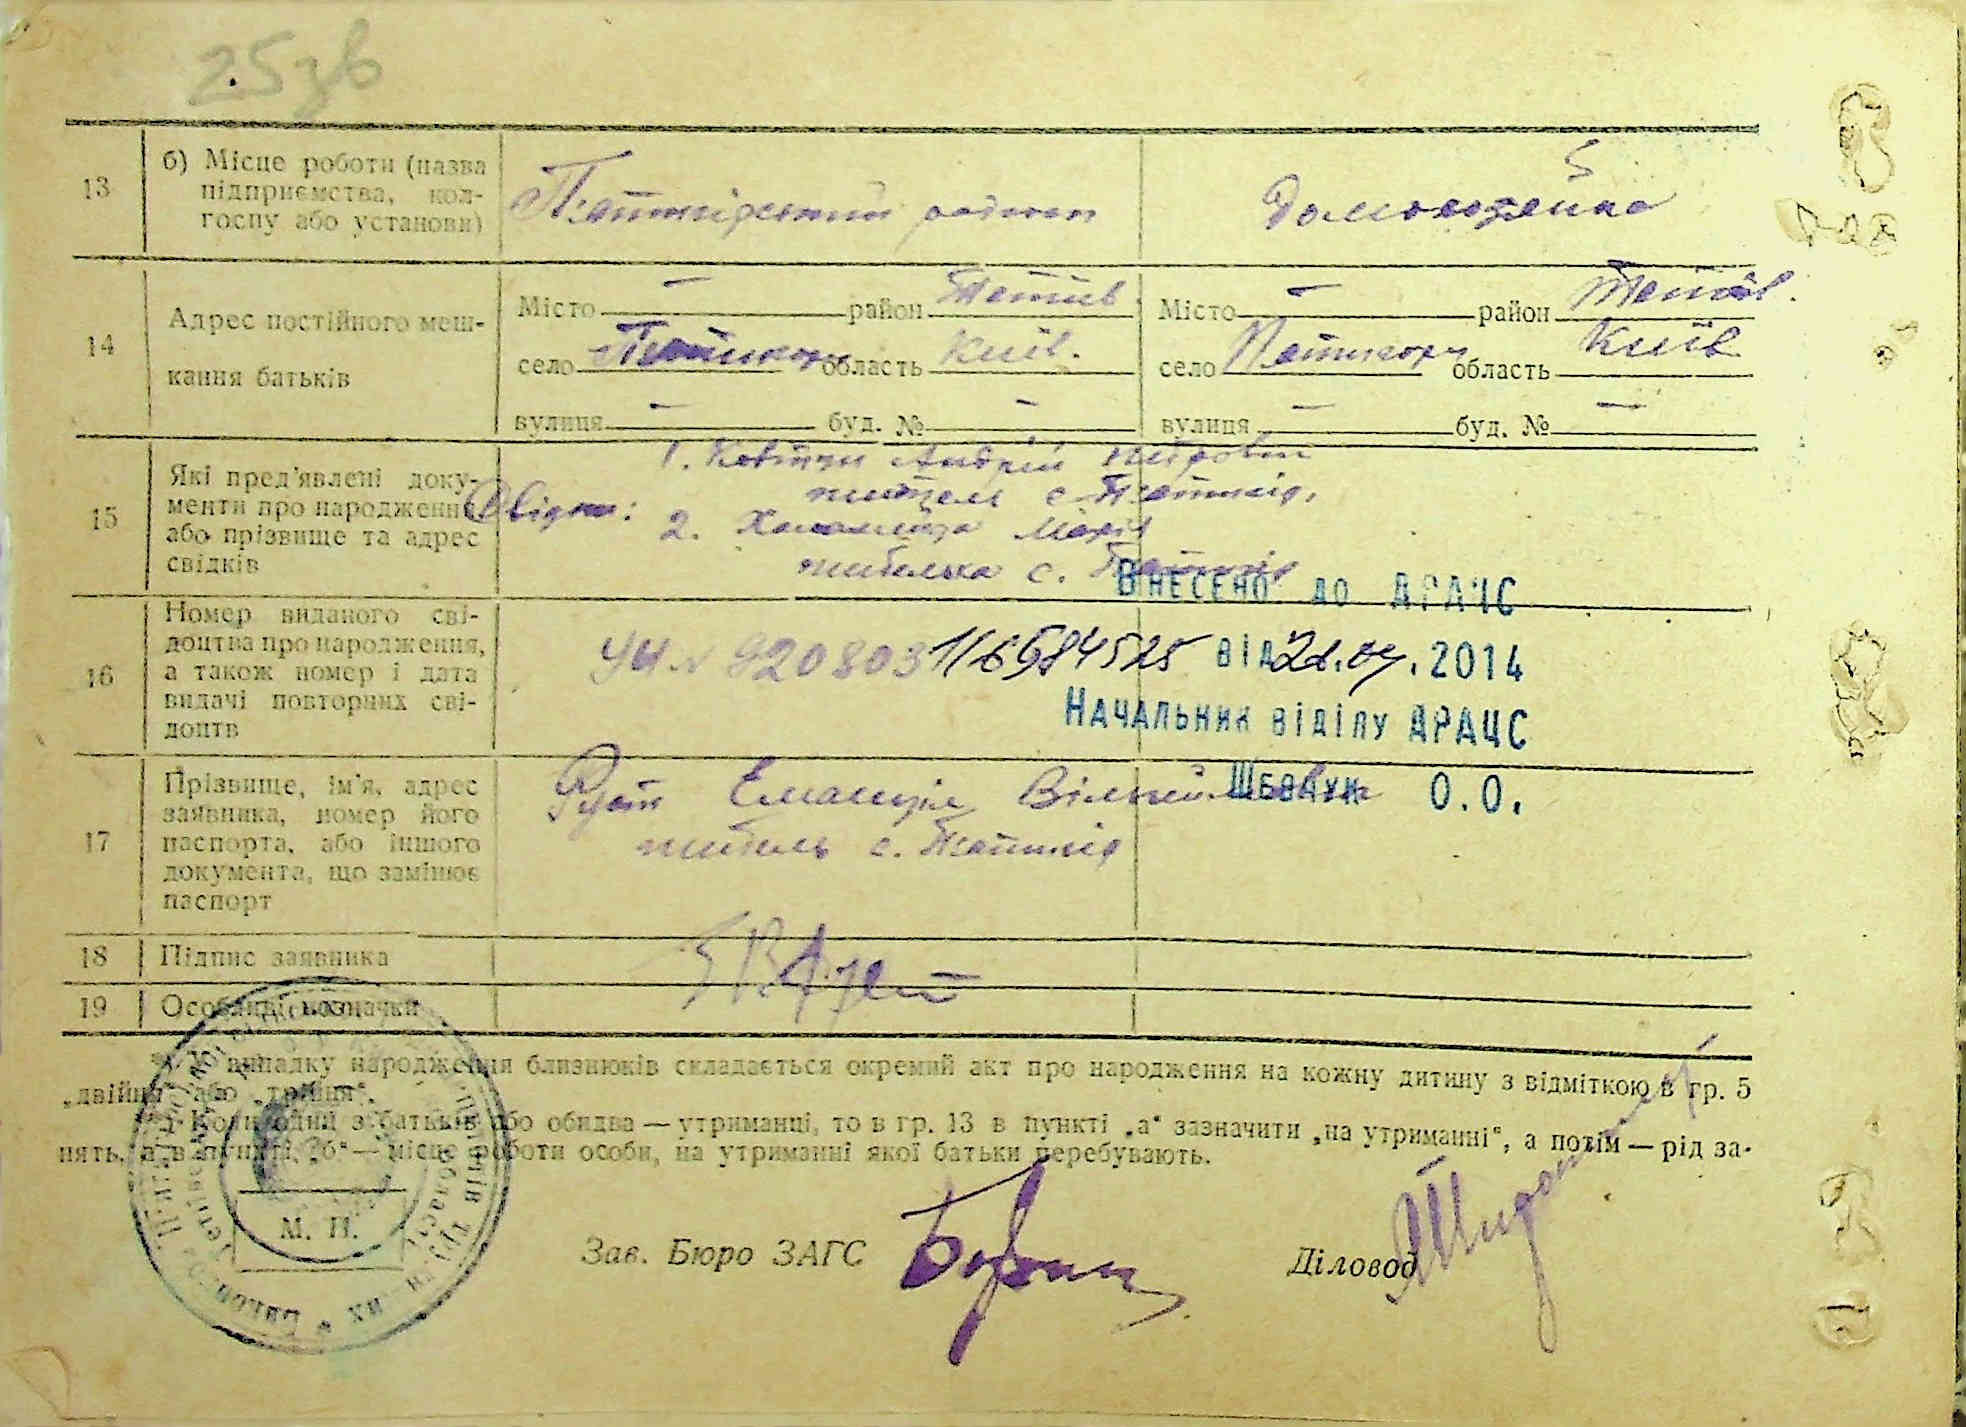 25зв
13 б) Місце роботи (назва
підприємства, кол-
госпу або установи)
Домогосзейка
14 Адрес постійного меш-
кання батьків
Місто — район Тетіїв. Місто — район Тетіїв.
село Пятигори область Київ. село Пятигори область Київ
вулиця — буд. № — вулиця — буд. № —
15 Які пред’явлені доку-
менти про народження
або прізвище та адрес
свідків
Свідки:
1. Ковтун Андрій Петрович
житель с. Пятигір.
2. Марія
жителька с. Пятигір
ВНЕСЕНО ДО ДРАЧС
16 Номер виданого сві-
доцтва про народження,
а також номер і дата
видачі повторних сві-
доцтв
УИ № 920803
ВІД .2014
НАЧАЛЬНИК ВІДІЛУ ДРАЦС
О.О.
17 Прізвище, ім’я, адрес
заявника, номер його
паспорта, або іншого
документа, що замінює
паспорт
Емануіл
житель с. Пятигір
18 Підпис заявника
19 Особливі позначки
*) У випадку народження близнюків складається окремий акт про народження на кожну дитину з відміткою в гр. 5
„двійня“ або „трійня“.
Коли один з батьків або обидва — утриманці, то в гр. 13 в пункті „а“ зазначити „на утриманні“, а потім — рід за-
нять, а в пункті „б“ — місце роботи особи, на утриманні якої батьки перебувають.
М. П.
Зав. Бюро ЗАГС
Діловод